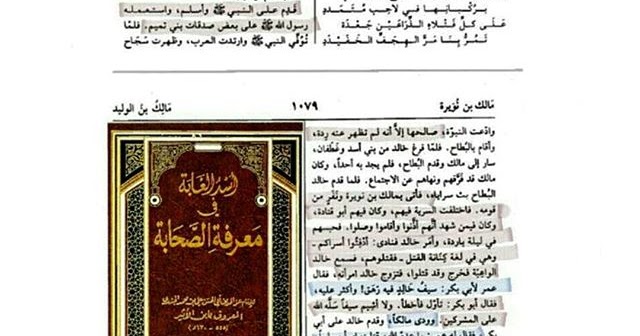 بركباتها في لاحب متمدد
قدم على النبي ﷺ وأسلم، واستعمله
على كل فتلاء الذراعين جعدة
رسول الله ﷺ على بعض صدقات بني تميم. فلما
تمر بنا مر الهجف الخفيدد
توفي النبي ﷺ وارتدت العرب، وظهرت سجاح
مالك بن نويرة
١٠٧٩
مالك بن الوليد
وادعت النبوة، صالحها إلا أنه لم تظهر عنه ردة،
وأقام بالبطاح. فلما فرغ خالد من بني أسد وغطفان،
سار إلى مالك وقدم البطاح، فلم يجد به أحداً، وكان
مالك قد فرقهم ونهاهم عن الاجتماع. فلما قدم خالد
البطاح بث سراياه، فأتي بمالك بن نويرة ونفر من
قومه. فاختلفت السرية فيهم، وكان فيهم أبو قتادة،
وكان فيمن شهد أنهم أذنوا وأقاموا وصلوا. فحبسهم
في ليلة باردة، وأمر خالد فنادى: أدفئوا أسراكم ـ
وهي في لغة كنانة القتل ـ فقتلوهم، فسمع خالد
الواعية فخرج وقد قتلوا، فتزوج خالد امرأته، فقال
عمر لأبي بكر: سيف خالد فيه رهق! وأكثر عليه،
فقال أبو بكر: تأول فأخطأ. ولا أشيم سيفاً سله الله
على المشركين. وودى مالكاً، وقدم خالد على أبي
أسد الغابة
في
معرفة الصحابة
المعروف بابن الأثير